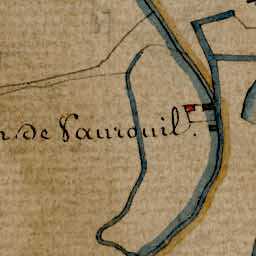 n de Vaurouil.